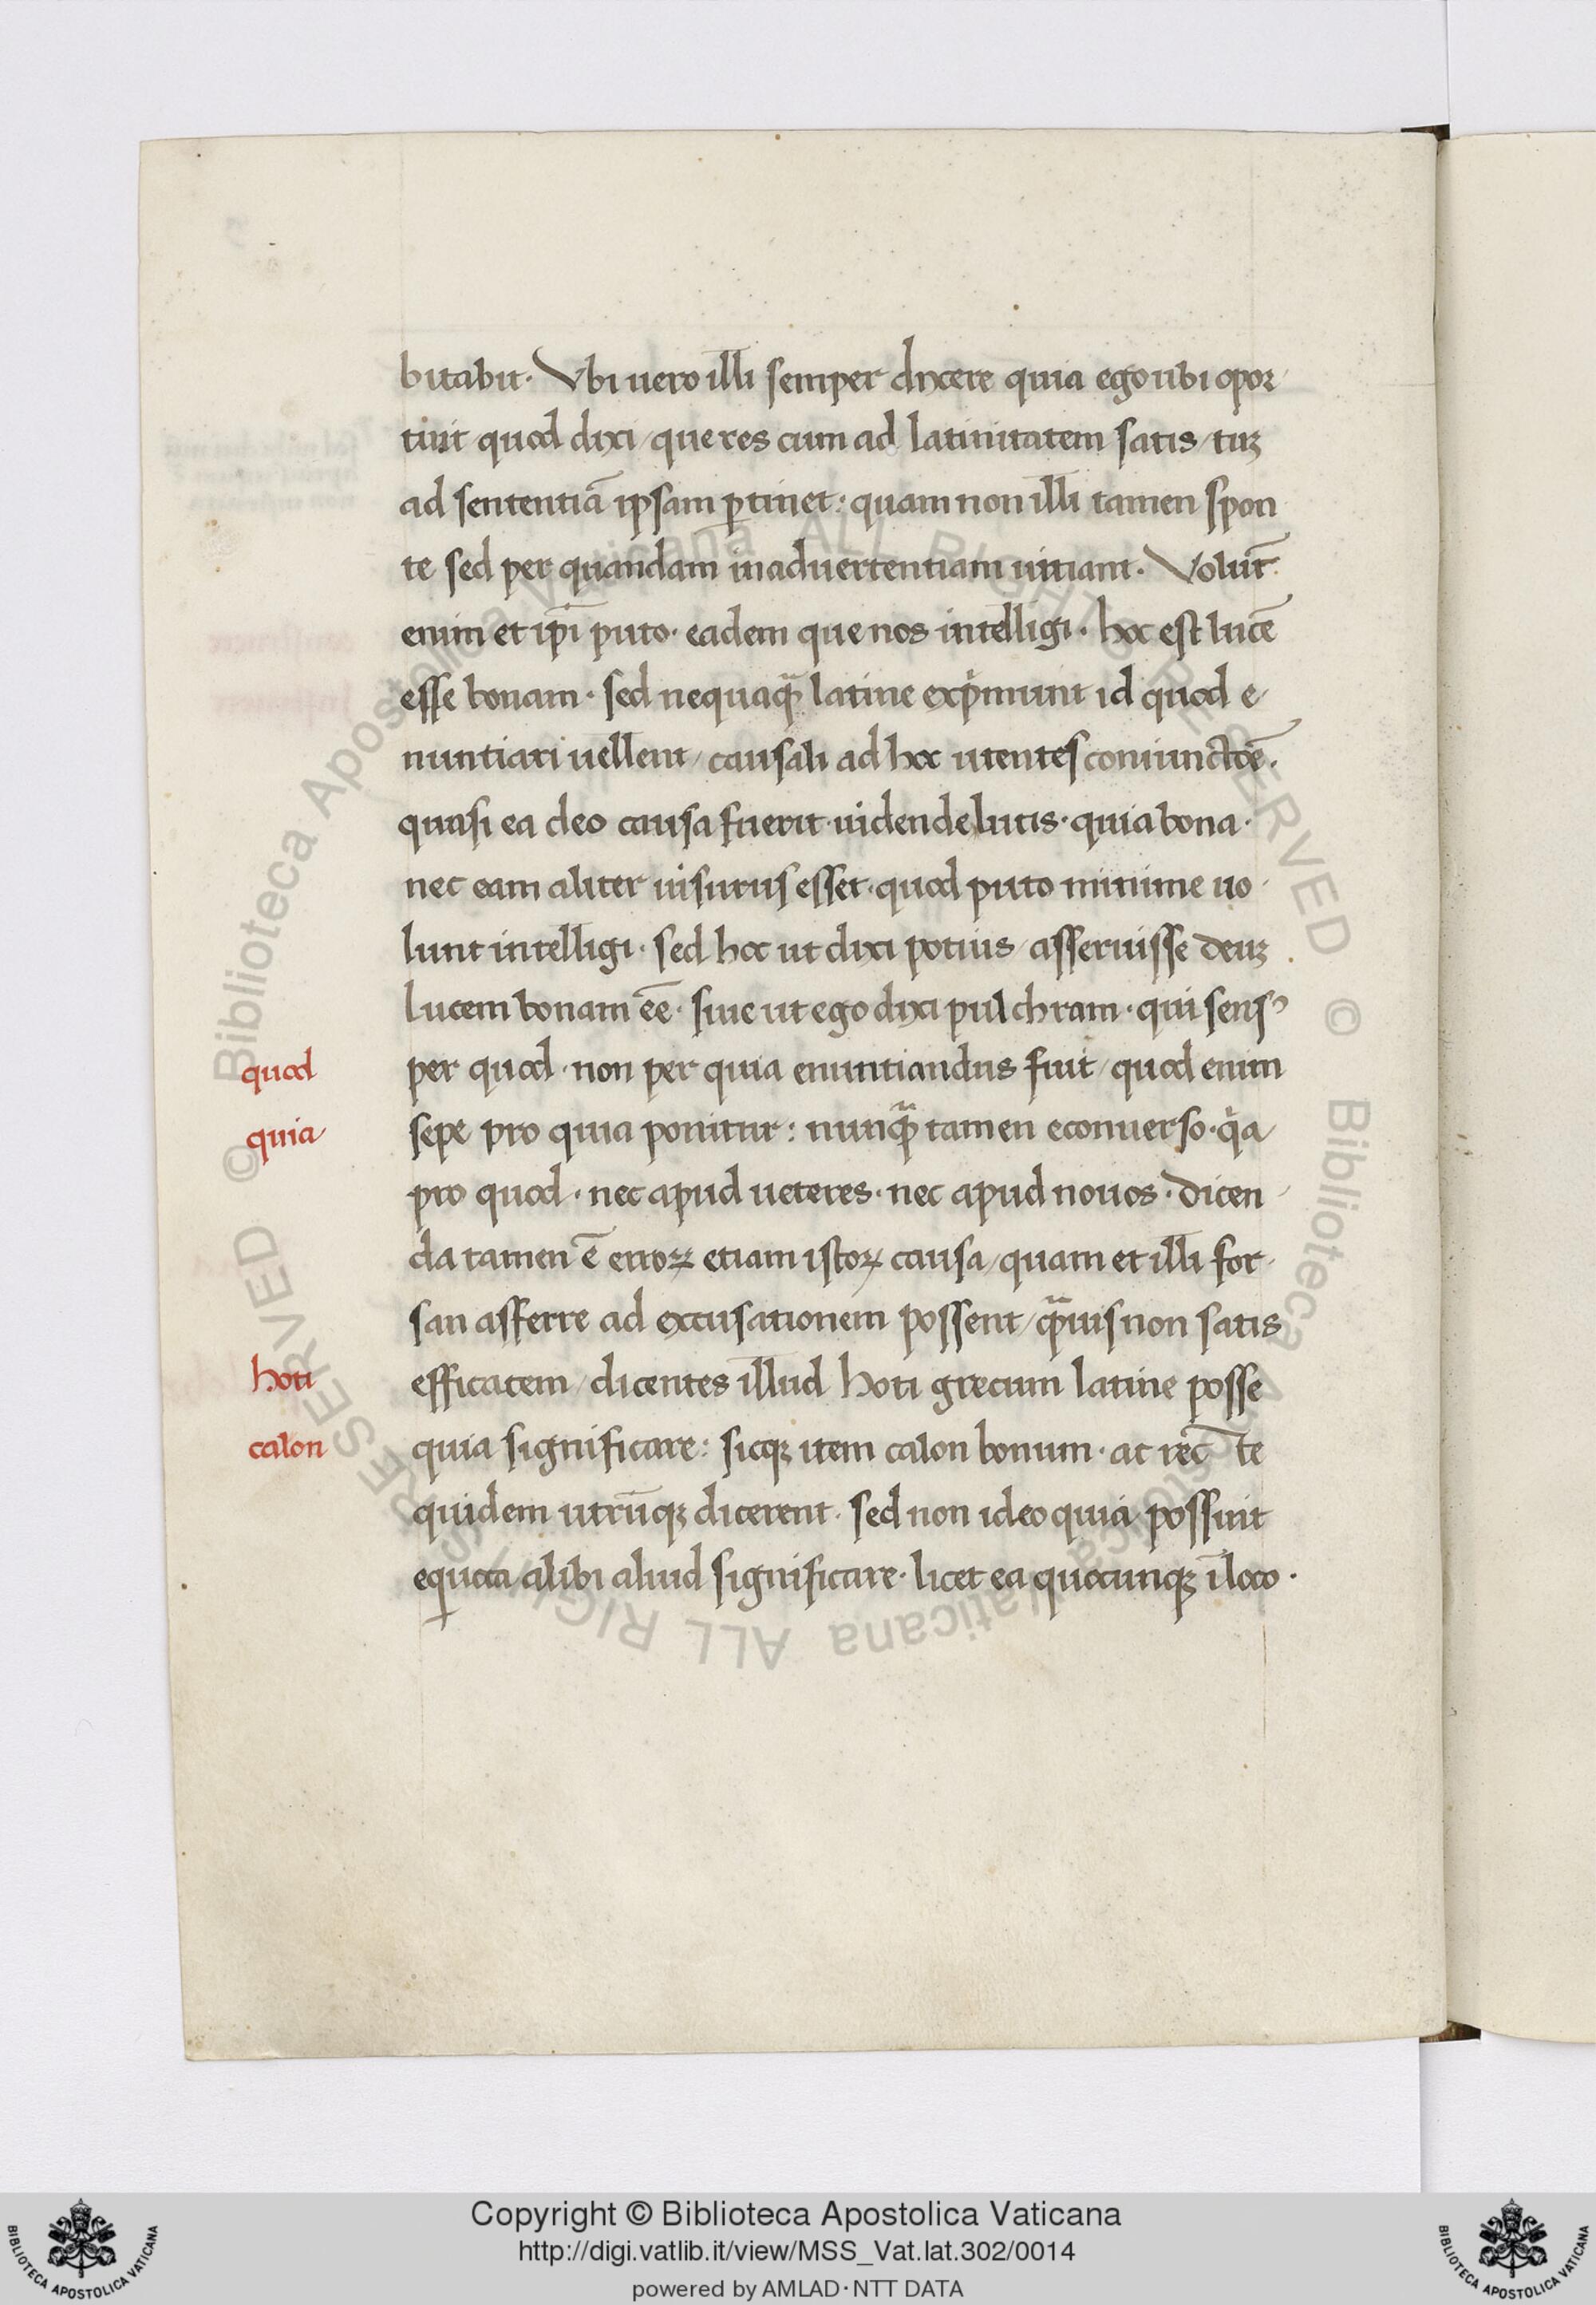 bitabit. Vbi uero illi semper dixere quia ego ubi opor
tuit quod dixi / que res cum ad latinitatem satis / tuꝫ
ad sententiā ipsam ꝑtinet : quam non illi tamen spon
te sed per quandam inaduertentiam uitiant. Volūt
enim et ip̄i puto · eadem que nos intelligi · hoc est lucē
esse bonam · sed nequaqͣ latine exp̍munt id quod e/
nuntiari uellent / causali ad hoc utentes coniunctōe ·
quasi ea deo causa fuerit uidende lucis · quia bona ·
nec eam aliter uisurus esset · quod puto minime uo
lunt intelligi · sed hoc ut dixi potius / asseruisse deuꝫ
lucem bonam ēē · siue ut ego dixi pulchram · qui sensꝰ
quod
per quod · non per quia enuntiandus fuit / quod enim
quia
sepe pro quia ponitur : nunqͣ tamen econuerso · qͥa
pro quod · nec apud ueteres · nec apud nouos · Dicen
da tamen ē erroꝝ etiam istoꝝ causa / quam et illi for
san afferre ad excusationem possent / qͣuis non satis
hoti
efficacem / dicentes illud hoti grecum latine posse
calon
quia significare : sicqꝫ item calon bonum · at rec te
quidem utrūqꝫ dicerent · sed non ideo quia possint
ea alibi aliud significare · licet ea quocunqꝫ ī loco ·
© Biblioteca Apostolica Vaticana ALL RIGHTS RESERVED © Biblioteca Apostolica Vaticana ALL RIGHTS RESERVED
Copyright © Biblioteca Apostolica Vaticana
http://digi.vatlib.it/view/MSS_Vat.lat.302/0014
powered by AMLAD · NTT DATA
BIBLIOTECA APOSTOLICA VATICANA
BIBLIOTECA APOSTOLICA VATICANA